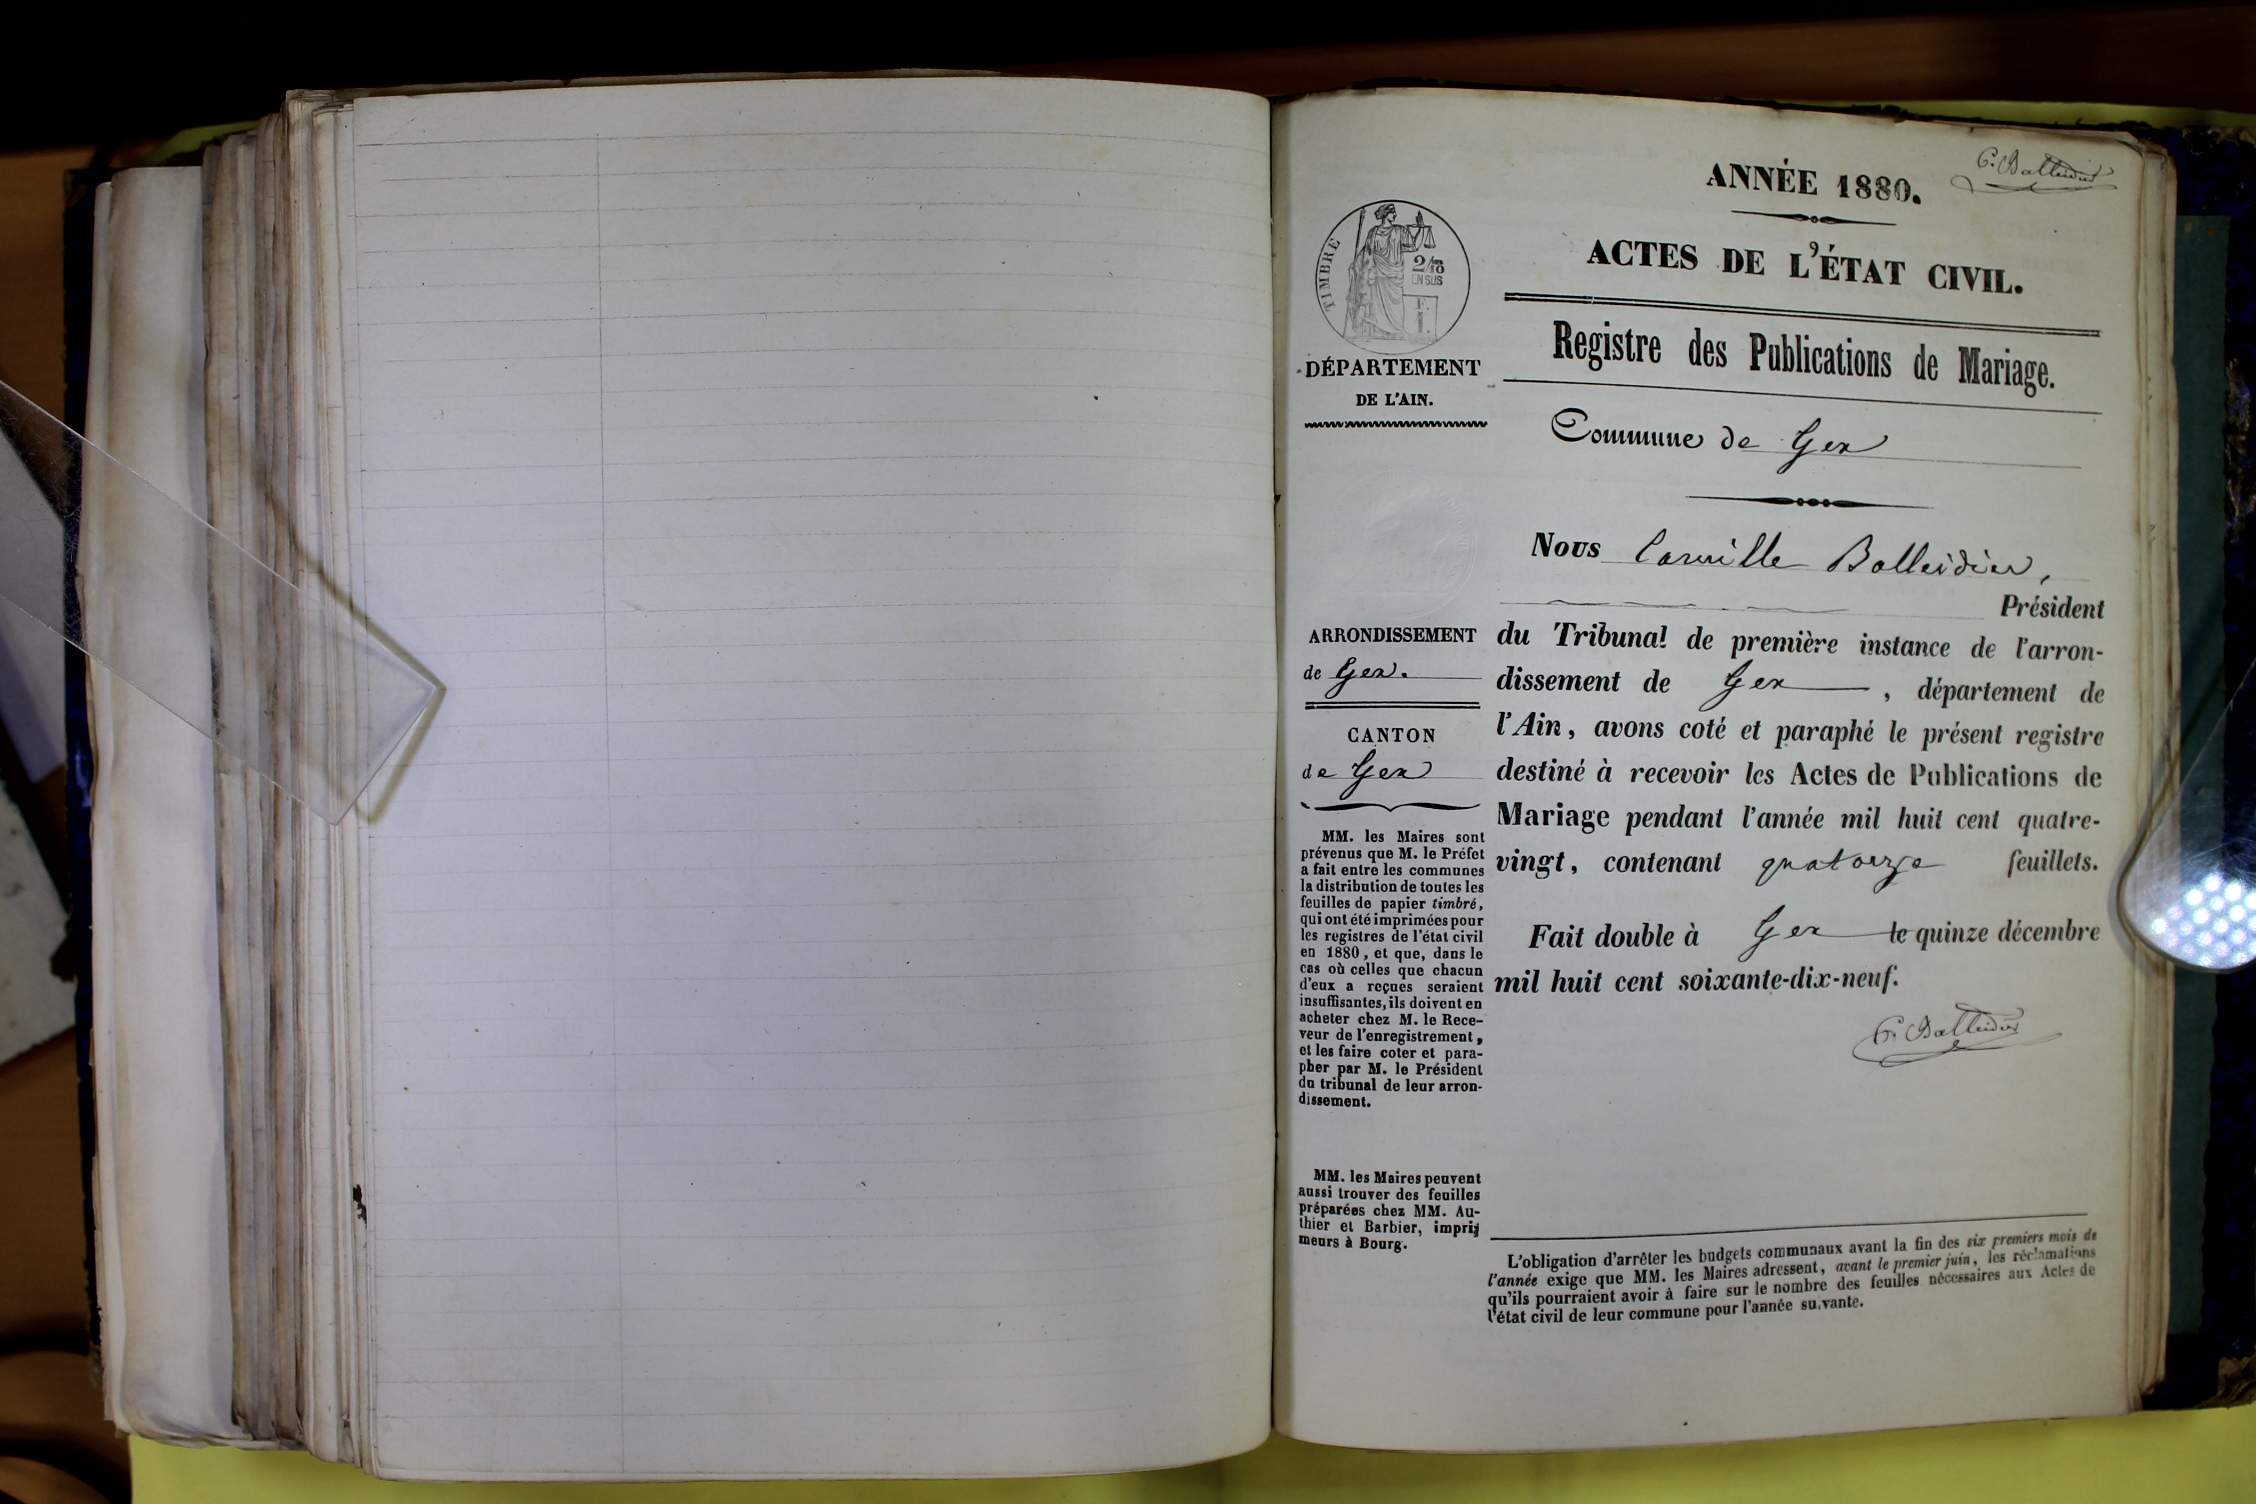 C. Balleidier
ANNÉE 1880.
ACTES DE L'ÉTAT CIVIL.
Registre des Publications de Mariage.
Commune de Gex
Nous Camille Balleidier,
Président
du Tribunal de première instance de l'arron-
dissement de Gex, département de
l'Ain, avons coté et paraphé le présent registre
destiné à recevoir les Actes de Publications de
Mariage pendant l'année mil huit cent quatre-
vingt, contenant quatorze feuillets.
Fait double à Gex le quinze décembre
mil huit cent soixante-dix-neuf.
C. Balleidier
TIMBRE
2/10
EN SUS
DÉPARTEMENT
DE L'AIN.
ARRONDISSEMENT
de Gex.
CANTON
de Gex
MM. les Maires sont
prévenus que M. le Préfet
a fait entre les communes
la distribution de toutes les
feuilles de papier timbré,
qui ont été imprimées pour
les registres de l'état civil
en 1880, et que, dans le
cas où celles que chacun
d'eux a reçues seraient
insuffisantes, ils doivent en
acheter chez M. le Rece-
veur de l'enregistrement,
et les faire coter et para-
pher par M. le Président
du tribunal de leur arron-
dissement.
MM. les Maires peuvent
aussi trouver des feuilles
préparées chez MM. Au-
thier et Barbier, impri-
meurs à Bourg.
L'obligation d'arrêter les budgets communaux avant la fin des six premiers mois de
l'année exige que MM. les Maires adressent, avant le premier juin, les réclamations
qu'ils pourraient avoir à faire sur le nombre des feuilles nécessaires aux Actes de
l'état civil de leur commune pour l'année suivante.